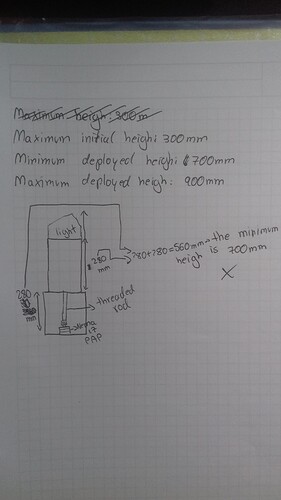 Maximum heigh: 300m
Maximum initial heigh: 300mm
Minimum deployed heigh: 700mm
Maximum deployed heigh: 900mm
light
280
mm
280+280=560mm→the minimum
heigh is 700mm
X
280
mm
threaded
rod
17
PAP